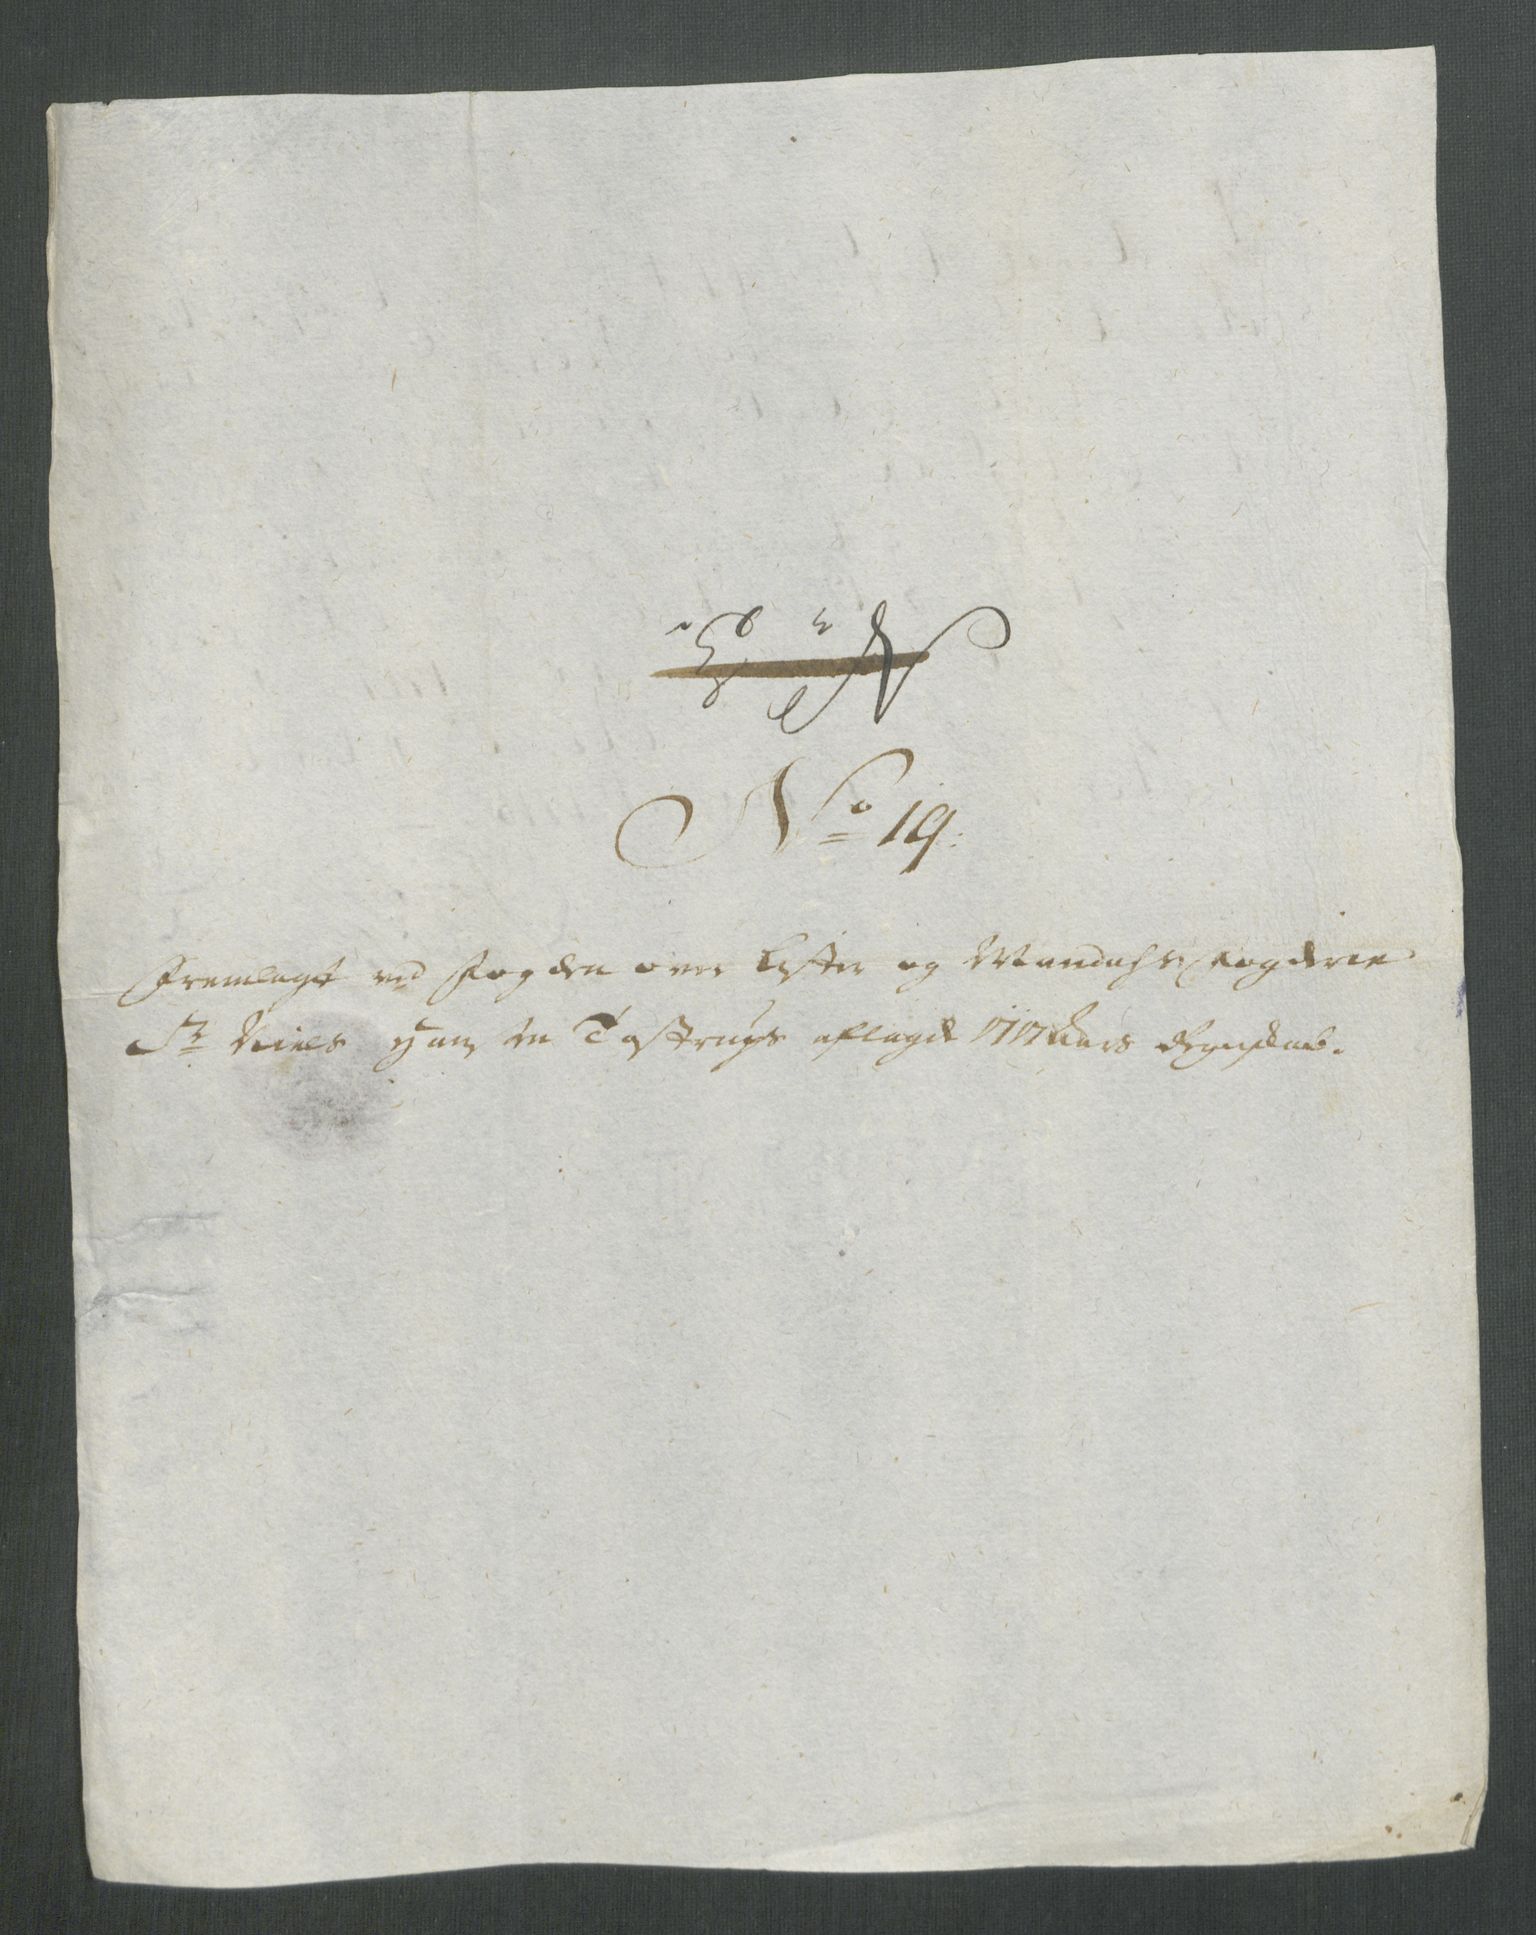 No 19.
Fremlagt ved Fogden over Lister og Mandahls Fogderie
Sr Niels Tostrups aflagde 1717 Aars Regnskab.